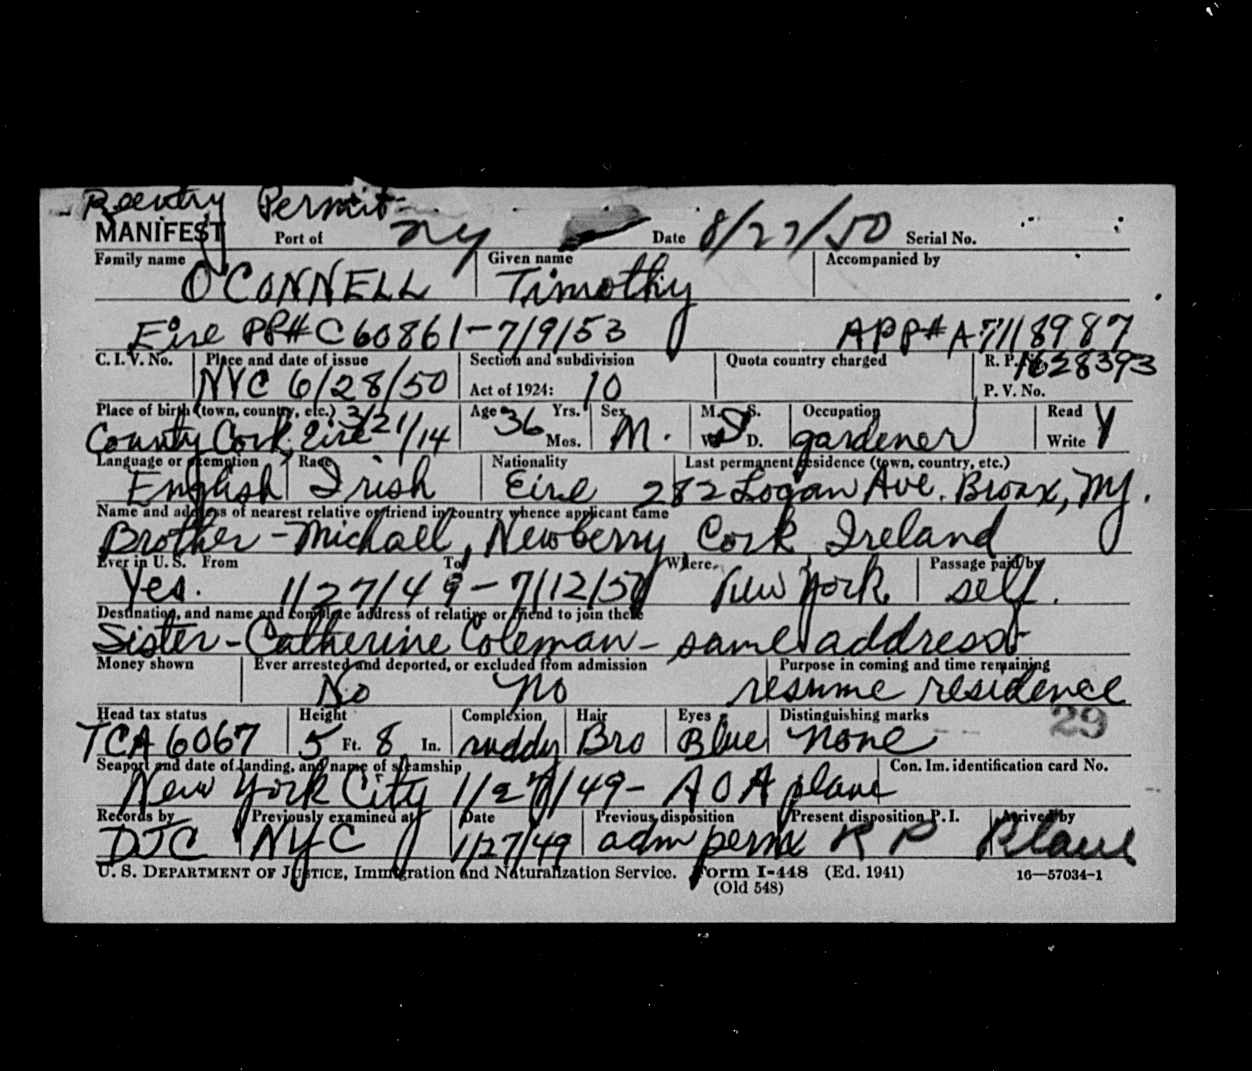 Reentry Permit
MANIFEST Port of NY Date 8/27/50 Serial No.
Family name Given name Accompanied by
O'CONNELL Timothy
Eire PP# C60861-7/9/53 APP# A7118987
C. I. V. No. Place and date of issue Section and subdivision Quota country charged R. P. 1628393
NYC 6/28/50 Act of 1924: 10 P. V. No.
Place of birth (town, country, etc.) 3/21/14 Age 36 Yrs. Sex M. S. Occupation Read Y
County Cork, Eire Mos. M. W. S D. gardener Write
Language or exemption Race Nationality Last permanent residence (town, country, etc.)
English Irish Eire 282 Logan Ave. Bronx, NY.
Name and address of nearest relative or friend in country whence applicant came
Brother - Michael, Newberry Cork Ireland
Ever in U. S. From To Where Passage paid by
Yes. 1/27/49 - 7/12/50 New York self.
Destination, and name and complete address of relative or friend to join there
Sister - Catherine Coleman - same address
Money shown Ever arrested and deported, or excluded from admission Purpose in coming and time remaining
No no resume residence
Head tax status Height Complexion Hair Eyes Distinguishing marks 29
TCA 6067 5 Ft. 8 In. ruddy Bro Blue none
Seaport and date of landing, and name of steamship Con. Im. identification card No.
New York City 1/27/49 - AOA plane
Records by Previously examined at Date Previous disposition Present disposition P. I. Arrived by
DJC NYC 1/27/49 adm perm R P Plane
U. S. DEPARTMENT OF JUSTICE, Immigration and Naturalization Service. Form I-448 (Ed. 1941) 16—57034-1
(Old 548)